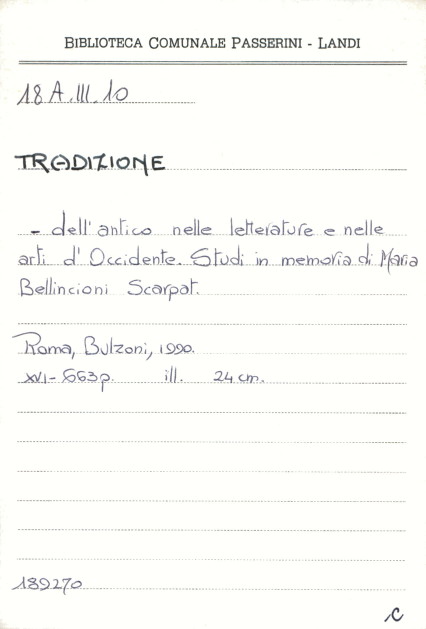 BIBLIOTECA COMUNALE PASSERINI - LANDI
18 A.III.10
TRADIZIONE
- dell'antico nelle letterature e nelle
arti d'Occidente. Studi in memoria di Maria
Bellincioni Scarpat.
Roma, Bulzoni, 1990.
XVI-663p. ill. 24 cm.
189270
C